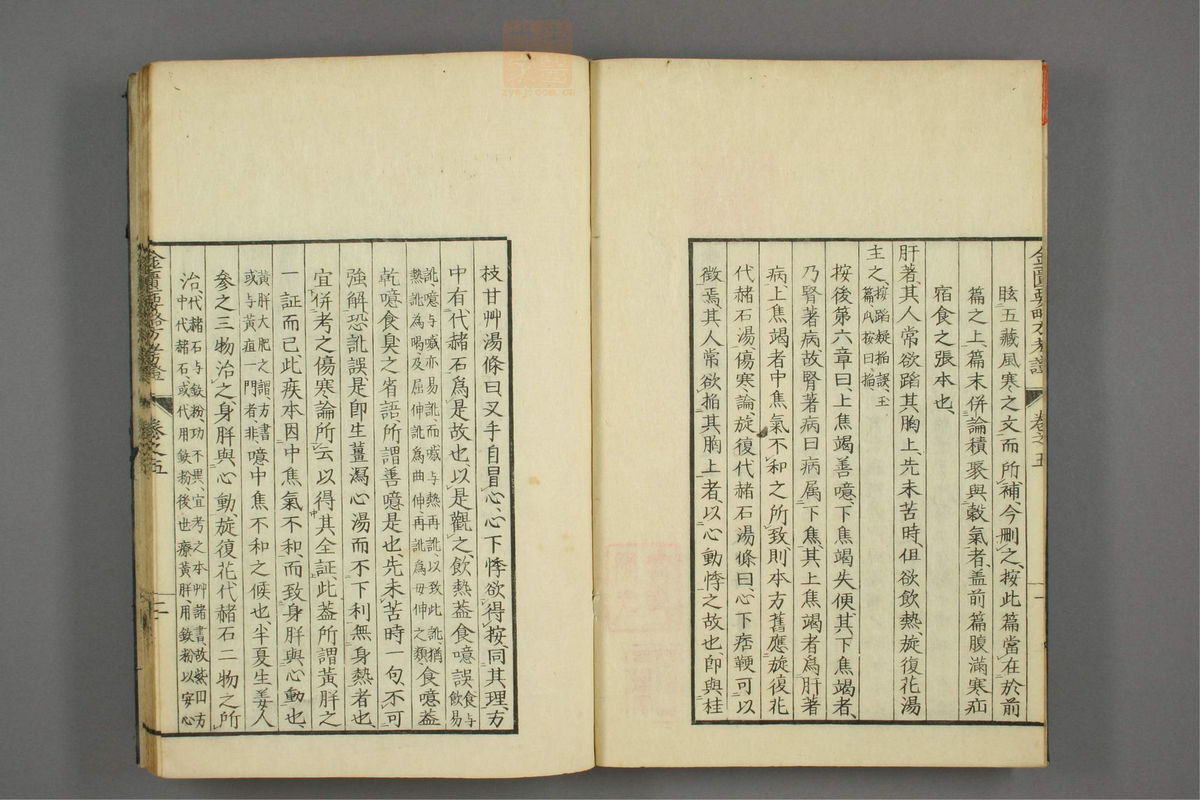 眩五藏風寒之文而所補今刪之按此篇當在於前
篇之上篇末併論積聚與穀氣者蓋前篇腹滿寒疝
宿食之張本也
肝著其人常欲蹈其胸上先未苦時但欲飲熱旋復花湯
主之按蹈疑掐誤玉篇爪按曰掐
按後第六章曰上焦竭善噫下焦竭失便其下焦竭者
乃腎著病故腎著病曰病属下焦其上焦竭者爲肝著
病上焦竭者中焦氣不和之所致則本方舊應旋復花
代赭石湯傷寒論旋復代赭石湯條曰心下痞鞕可以
徵焉其人常欲掐其胸上者以心動悸之故也卽與桂
枝甘艸湯條曰叉手自冒心心下悸欲得按同其理方
中有代赭石爲是故也以是觀之飲熱蓋食噫誤食与飲易
訛噫与喊亦易訛而喊与熱再訛以致此訛猶熱訛為喝及屈伸訛為曲伸再訛為毋伸之類食噫蓋
乾噫食臭之省語所謂善噫是也先未苦時一句不可
強解恐訛誤是卽生薑瀉心湯而不下利無身熱者也
宜併考之傷寒論所云以得其全証此蓋所謂黃胖之
一証而已此疾本因中焦氣不和而致身胖與心動也
黃胖大肥之謂方書或与黃疸一門者非噫中焦不和之候也半夏生姜人
參之三物治之身胖與心動旋復花代赭石二物之所
治代赭石与鈸粉功不異宜考之本艸諸書故紫田方中代赭石或代用鈸粉後世療黃胖用鈸粉以安心
金匱要略方考證
卷之五
二